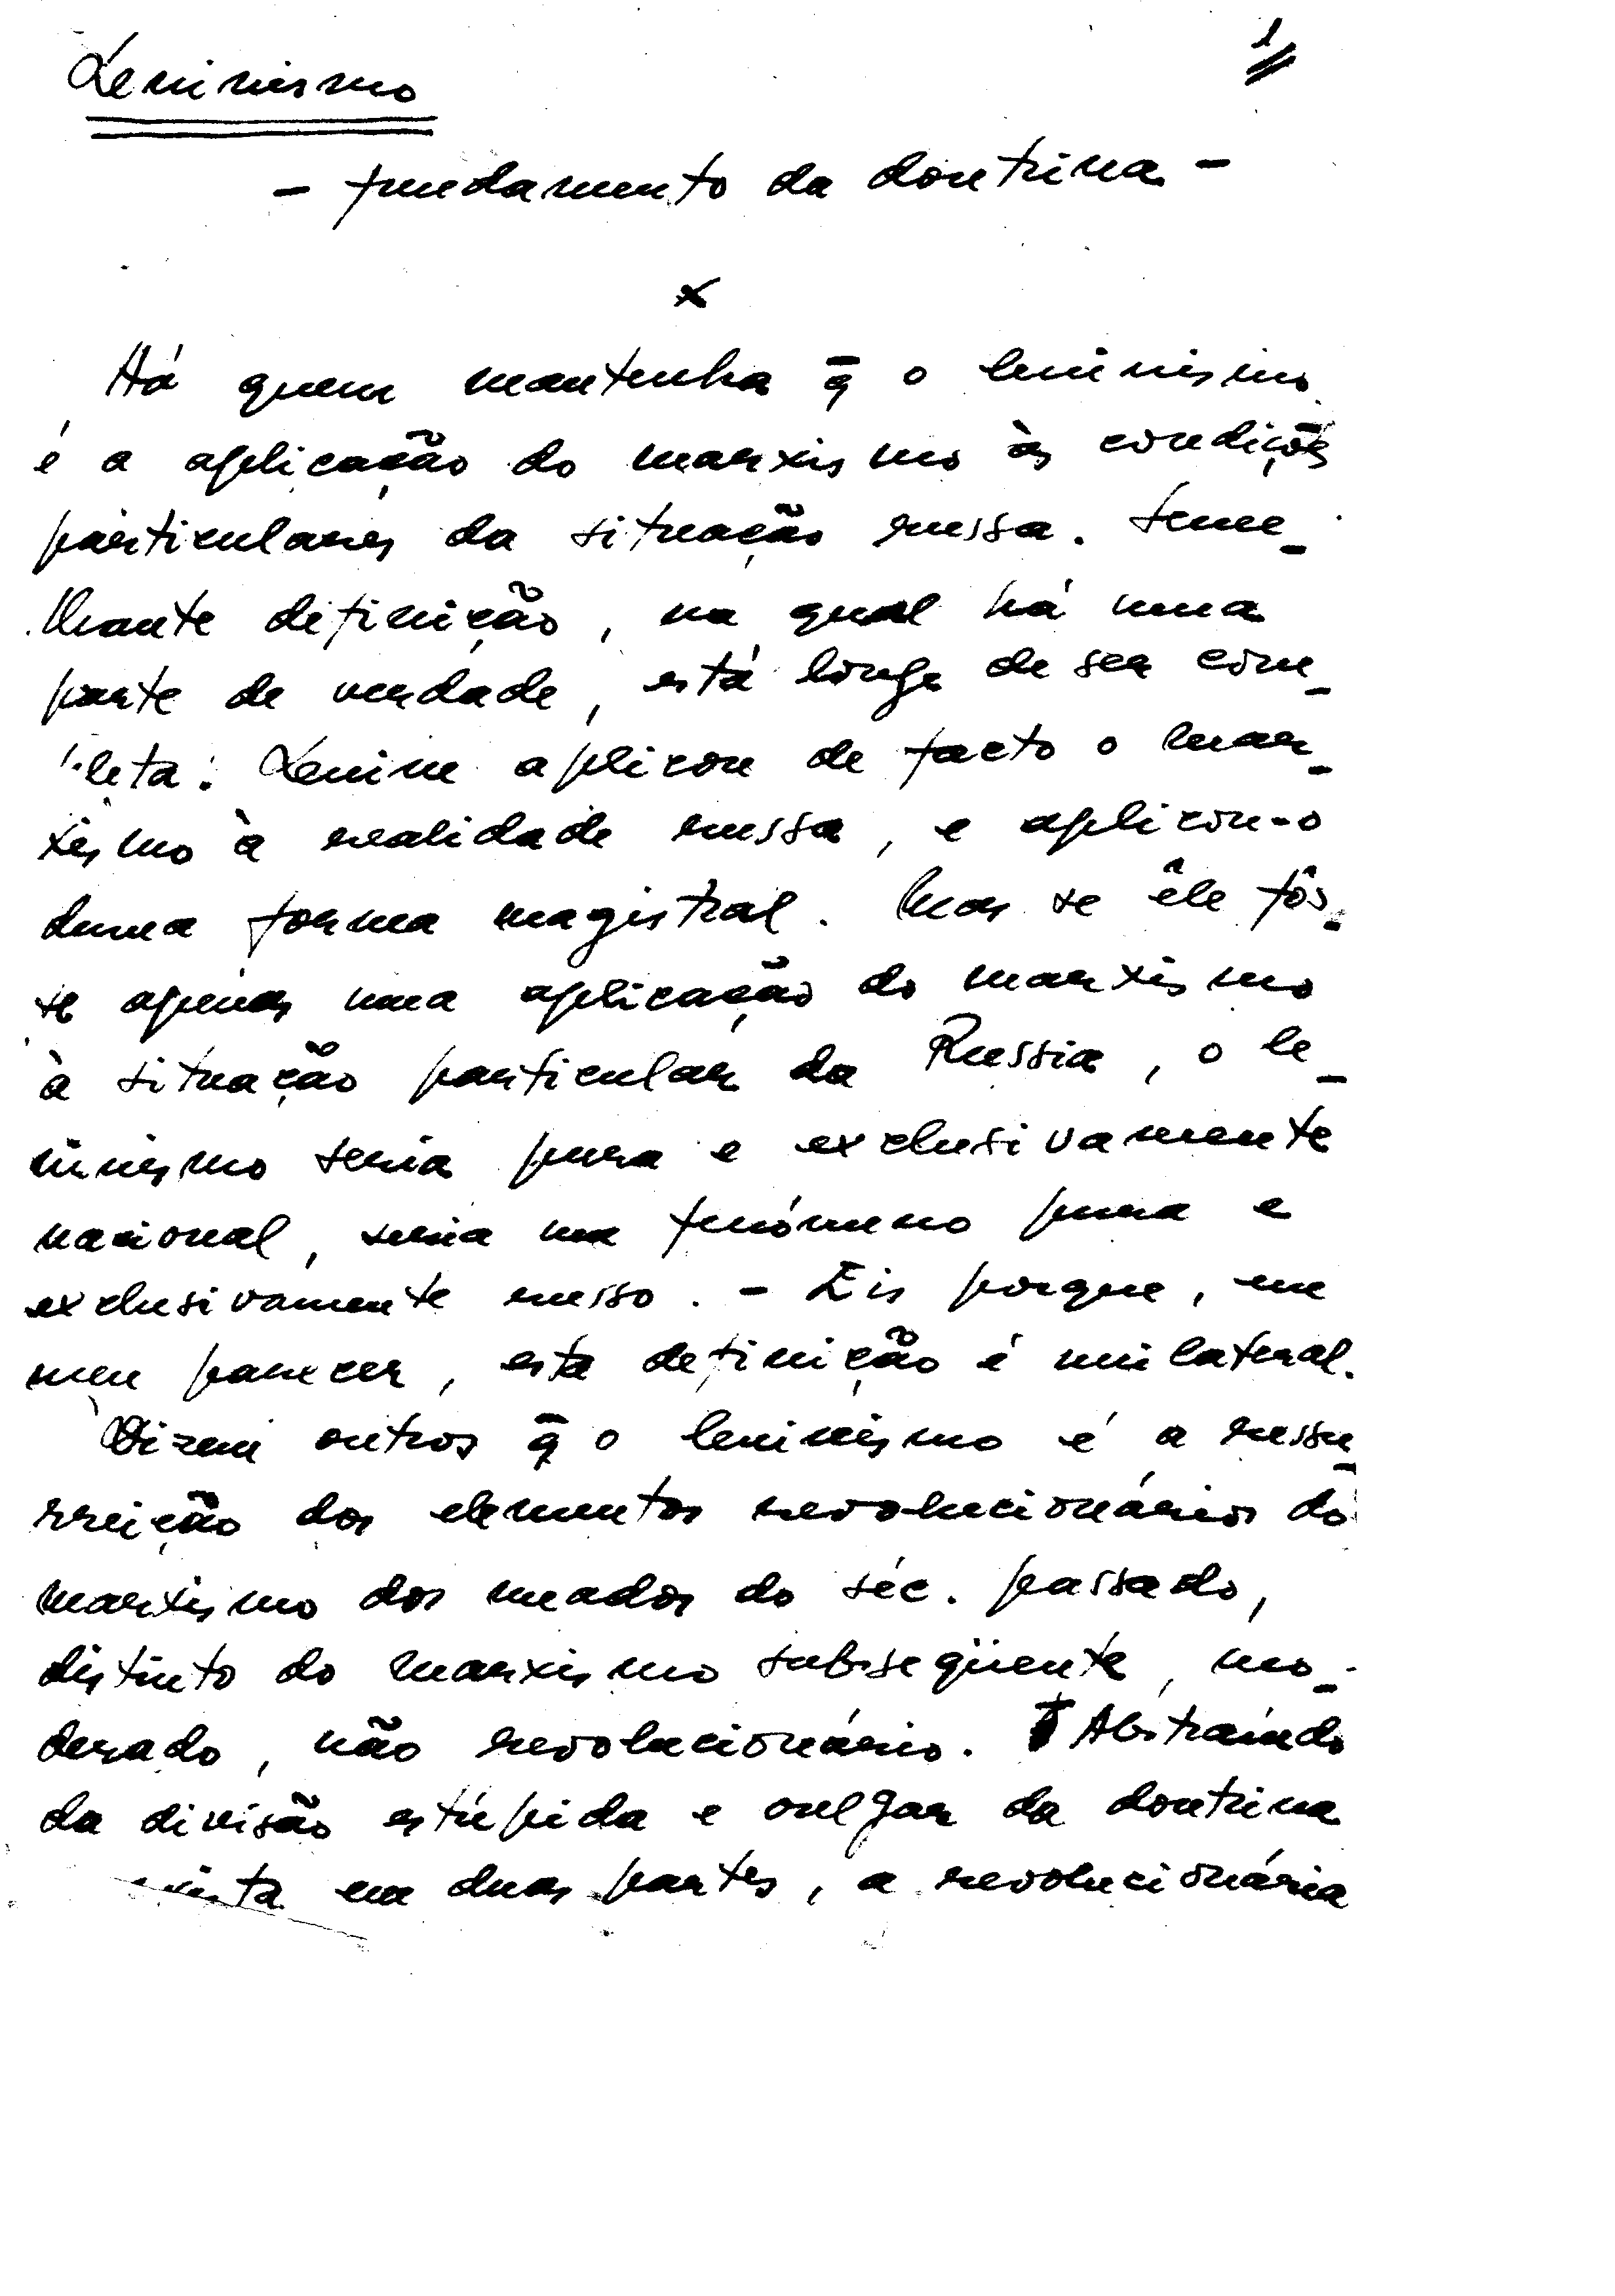 1
Leninismo
- fundamento da doutrina -
x
Há quem mantenha q̄ o leninismo
é a aplicação do marxismo às condições
particulares da situação russa. Seme-
lhante definição, na qual há uma
parte de verdade, está longe de ser com-
pleta. Lenine aplicou de facto o mar-
xismo à realidade russa, e aplicou-o
duma forma magistral. Mas se êle fôs-
se apenas uma aplicação do marxismo
à situação particular da Russia, o le-
ninismo seria pura e exclusivamente
nacional, seria um fenómeno pura e
exclusivamente russo. - Eis porque, em
meu parecer, esta definição é unilateral.
Dizem outros q̄ o leninismo é a ressu-
rreição dos elementos revolucionários do
marxismo dos meados do séc. passado,
distinto do marxismo subseqüente, mo-
derado, não revolucionário. Abstraíndo
da divisão estúpida e vulgar da doutrina
em duas partes, a revolucionária